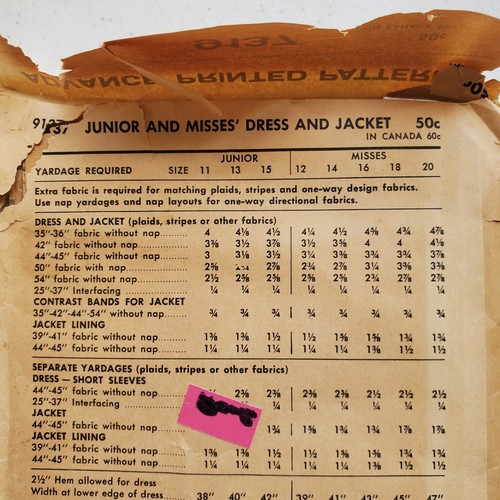 9137
50c
ADVANCE PRINTED PATTERN
9137 JUNIOR AND MISSES' DRESS AND JACKET 50c
IN CANADA 60c
JUNIOR MISSES
YARDAGE REQUIRED SIZE 11 13 15 12 14 16 18 20
Extra fabric is required for matching plaids, stripes and one-way design fabrics.
Use nap yardages and nap layouts for one-way directional fabrics.
DRESS AND JACKET (plaids, stripes or other fabrics)
35"-36" fabric without nap 4 4⅛ 4½ 4¼ 4½ 4⅝ 4¾ 4⅞
42" fabric without nap 3⅜ 3½ 3⅞ 3½ 3⅝ 4 4 4⅛
44"-45" fabric without nap 3 3⅛ 3½ 3¼ 3⅜ 3¾ 3¾ 3⅞
50" fabric with nap 2⅝ 2⅞ 2¾ 2⅞ 3¼ 3⅜ 3⅜
54" fabric without nap 2½ 2⅝ 2⅝ 2⅝ 2⅝ 2¾ 2⅞ 2⅞
25"-37" Interfacing ¼ ¼ ¼ ¼ ¼ ¼ ¼ ¼
CONTRAST BANDS FOR JACKET
35"-42"-44"-54" without nap ¾ ¾ ¾ ¾ ¾ ¾ ¾ ¾
JACKET LINING
39"-41" fabric without nap 1⅜ 1⅜ 1½ 1½ 1⅝ 1⅝ 1¾ 1¾
44"-45" fabric without nap 1¼ 1¼ 1¼ 1¼ 1¼ 1⅜ 1½ 1½
SEPARATE YARDAGES (plaids, stripes or other fabrics)
DRESS — SHORT SLEEVES
44"-45" fabric without nap 2⅜ 2⅜ 2⅜ 2⅜ 2½ 2½ 2½
25"-37" Interfacing ¼ ¼ ¼ ¼ ¼ ¼
JACKET
44"-45" fabric without nap 1¾ 1¼ 1¾ 1¾ 1⅞ 1⅞
JACKET LINING
39"-41" fabric without nap 1⅜ 1⅜ 1½ 1½ 1⅝ 1⅝ 1¾ 1¾
44"-45" fabric without nap 1¼ 1¼ 1¼ 1¼ 1¼ 1⅜ 1½ 1½
2½" Hem allowed for dress
Width at lower edge of dress 38" 40" 42" 39" 41" 43" 45" 47"